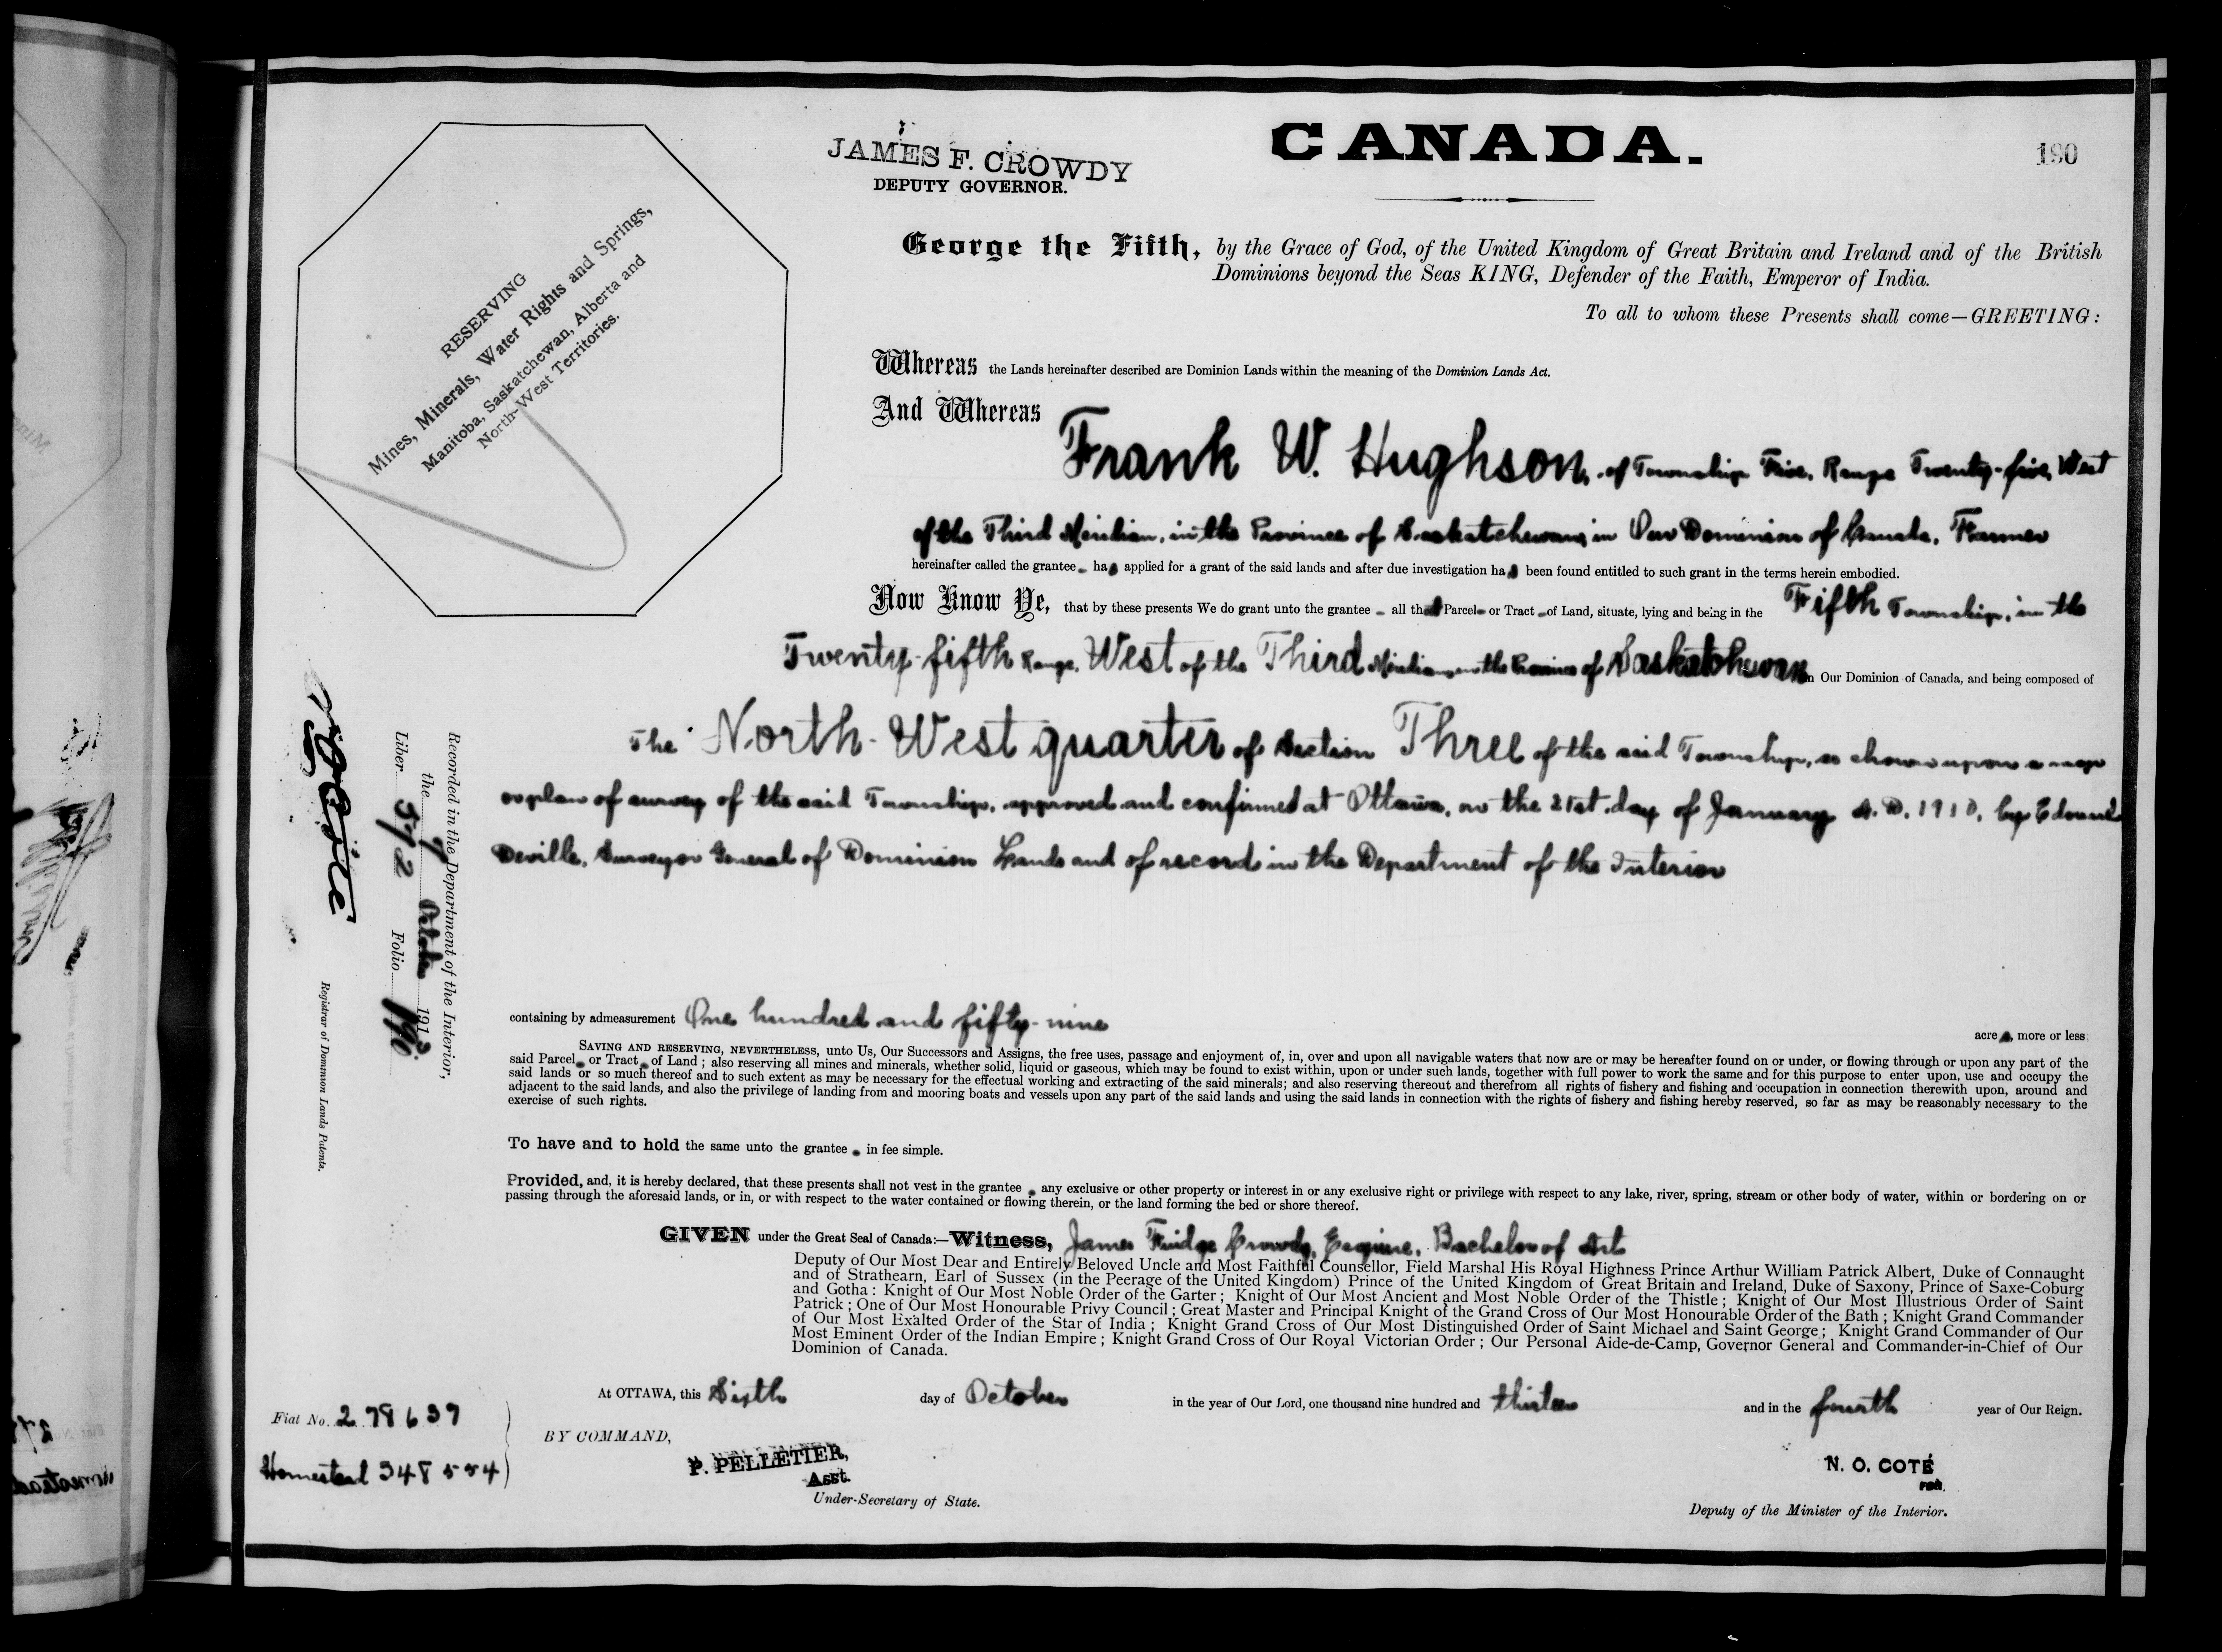 JAMES F. CROWDY
DEPUTY GOVERNOR.
CANADA.
190
RESERVING
Mines, Minerals, Water Rights and Springs,
Manitoba, Saskatchewan, Alberta and
North-West Territories.
George the Fifth, by the Grace of God, of the United Kingdom of Great Britain and Ireland and of the British
Dominions beyond the Seas KING, Defender of the Faith, Emperor of India.
To all to whom these Presents shall come—GREETING:
Whereas the Lands hereinafter described are Dominion Lands within the meaning of the Dominion Lands Act.
And Whereas
Frank W. Hughson, of Township Five, Range Twenty-five, West
of the Third Meridian, in the Province of Saskatchewan, in Our Dominion of Canada, Farmer
hereinafter called the grantee has applied for a grant of the said lands and after due investigation has been found entitled to such grant in the terms herein embodied.
Now Know Ye, that by these presents We do grant unto the grantee all that Parcel or Tract of Land, situate, lying and being in the Fifth Township, in the
Twenty-fifth Range, West of the Third Meridian, in the Province of Saskatchewan in Our Dominion of Canada, and being composed of
The North-West quarter of Section Three of the said Township, as shown upon a map
or plan of survey of the said Township, approved and confirmed at Ottawa, on the 21st day of January A.D. 1910, by Edouard
Deville, Surveyor General of Dominion Lands and of record in the Department of the Interior
containing by admeasurement One hundred and fifty-nine acres, more or less;
SAVING AND RESERVING, NEVERTHELESS, unto Us, Our Successors and Assigns, the free uses, passage and enjoyment of, in, over and upon all navigable waters that now are or may be hereafter found on or under, or flowing through or upon any part of the
said Parcel or Tract of Land; also reserving all mines and minerals, whether solid, liquid or gaseous, which may be found to exist within, upon or under such lands, together with full power to work the same and for this purpose to enter upon, use and occupy the
said lands or so much thereof and to such extent as may be necessary for the effectual working and extracting of the said minerals; and also reserving thereout and therefrom all rights of fishery and fishing and occupation in connection therewith upon, around and
adjacent to the said lands, and also the privilege of landing from and mooring boats and vessels upon any part of the said lands and using the said lands in connection with the rights of fishery and fishing hereby reserved, so far as may be reasonably necessary to the
exercise of such rights.
To have and to hold the same unto the grantee in fee simple.
Provided, and, it is hereby declared, that these presents shall not vest in the grantee any exclusive or other property or interest in or any exclusive right or privilege with respect to any lake, river, spring, stream or other body of water, within or bordering on or
passing through the aforesaid lands, or in, or with respect to the water contained or flowing therein, or the land forming the bed or shore thereof.
GIVEN under the Great Seal of Canada:—Witness, James Fridge Crowdy, Esquire, Bachelor of Arts
Deputy of Our Most Dear and Entirely Beloved Uncle and Most Faithful Counsellor, Field Marshal His Royal Highness Prince Arthur William Patrick Albert, Duke of Connaught
and of Strathearn, Earl of Sussex (in the Peerage of the United Kingdom) Prince of the United Kingdom of Great Britain and Ireland, Duke of Saxony, Prince of Saxe-Coburg
and Gotha: Knight of Our Most Noble Order of the Garter; Knight of Our Most Ancient and Most Noble Order of the Thistle; Knight of Our Most Illustrious Order of Saint
Patrick; One of Our Most Honourable Privy Council; Great Master and Principal Knight of the Grand Cross of Our Most Honourable Order of the Bath; Knight Grand Commander
of Our Most Exalted Order of the Star of India; Knight Grand Cross of Our Most Distinguished Order of Saint Michael and Saint George; Knight Grand Commander of Our
Most Eminent Order of the Indian Empire; Knight Grand Cross of Our Royal Victorian Order; Our Personal Aide-de-Camp, Governor General and Commander-in-Chief of Our
Dominion of Canada.
At OTTAWA, this Sixth day of October in the year of Our Lord, one thousand nine hundred and thirteen and in the fourth year of Our Reign.
BY COMMAND,
P. PELLETIER,
Asst.
Under-Secretary of State.
N. O. COTÉ
FOR
Deputy of the Minister of the Interior.
Fiat No. 278639
Homestead 348554
Recorded in the Department of the Interior,
the 9 October 1913
Liber 572 Folio 190
N O Coté
Registrar of Dominion Lands Patents.